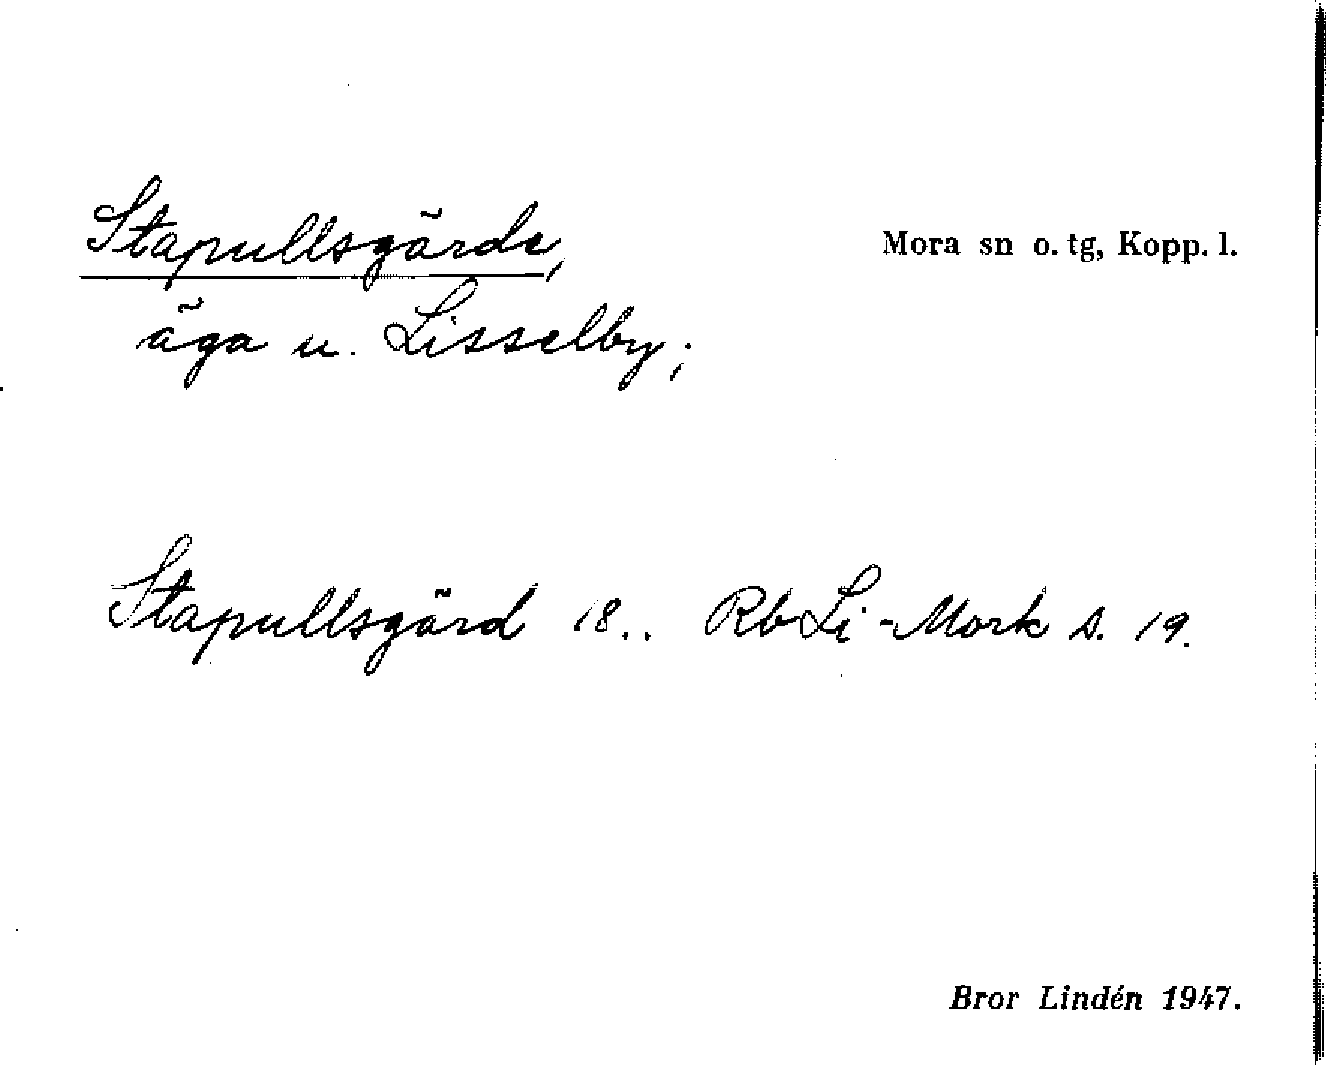 Stapullsgärde,
Mora sn o. tg, Kopp. l.
äga u. Lisselby;
Stapullsgärd 18.. RbLi-Mork s. 19.
Bror Lindén 1947.